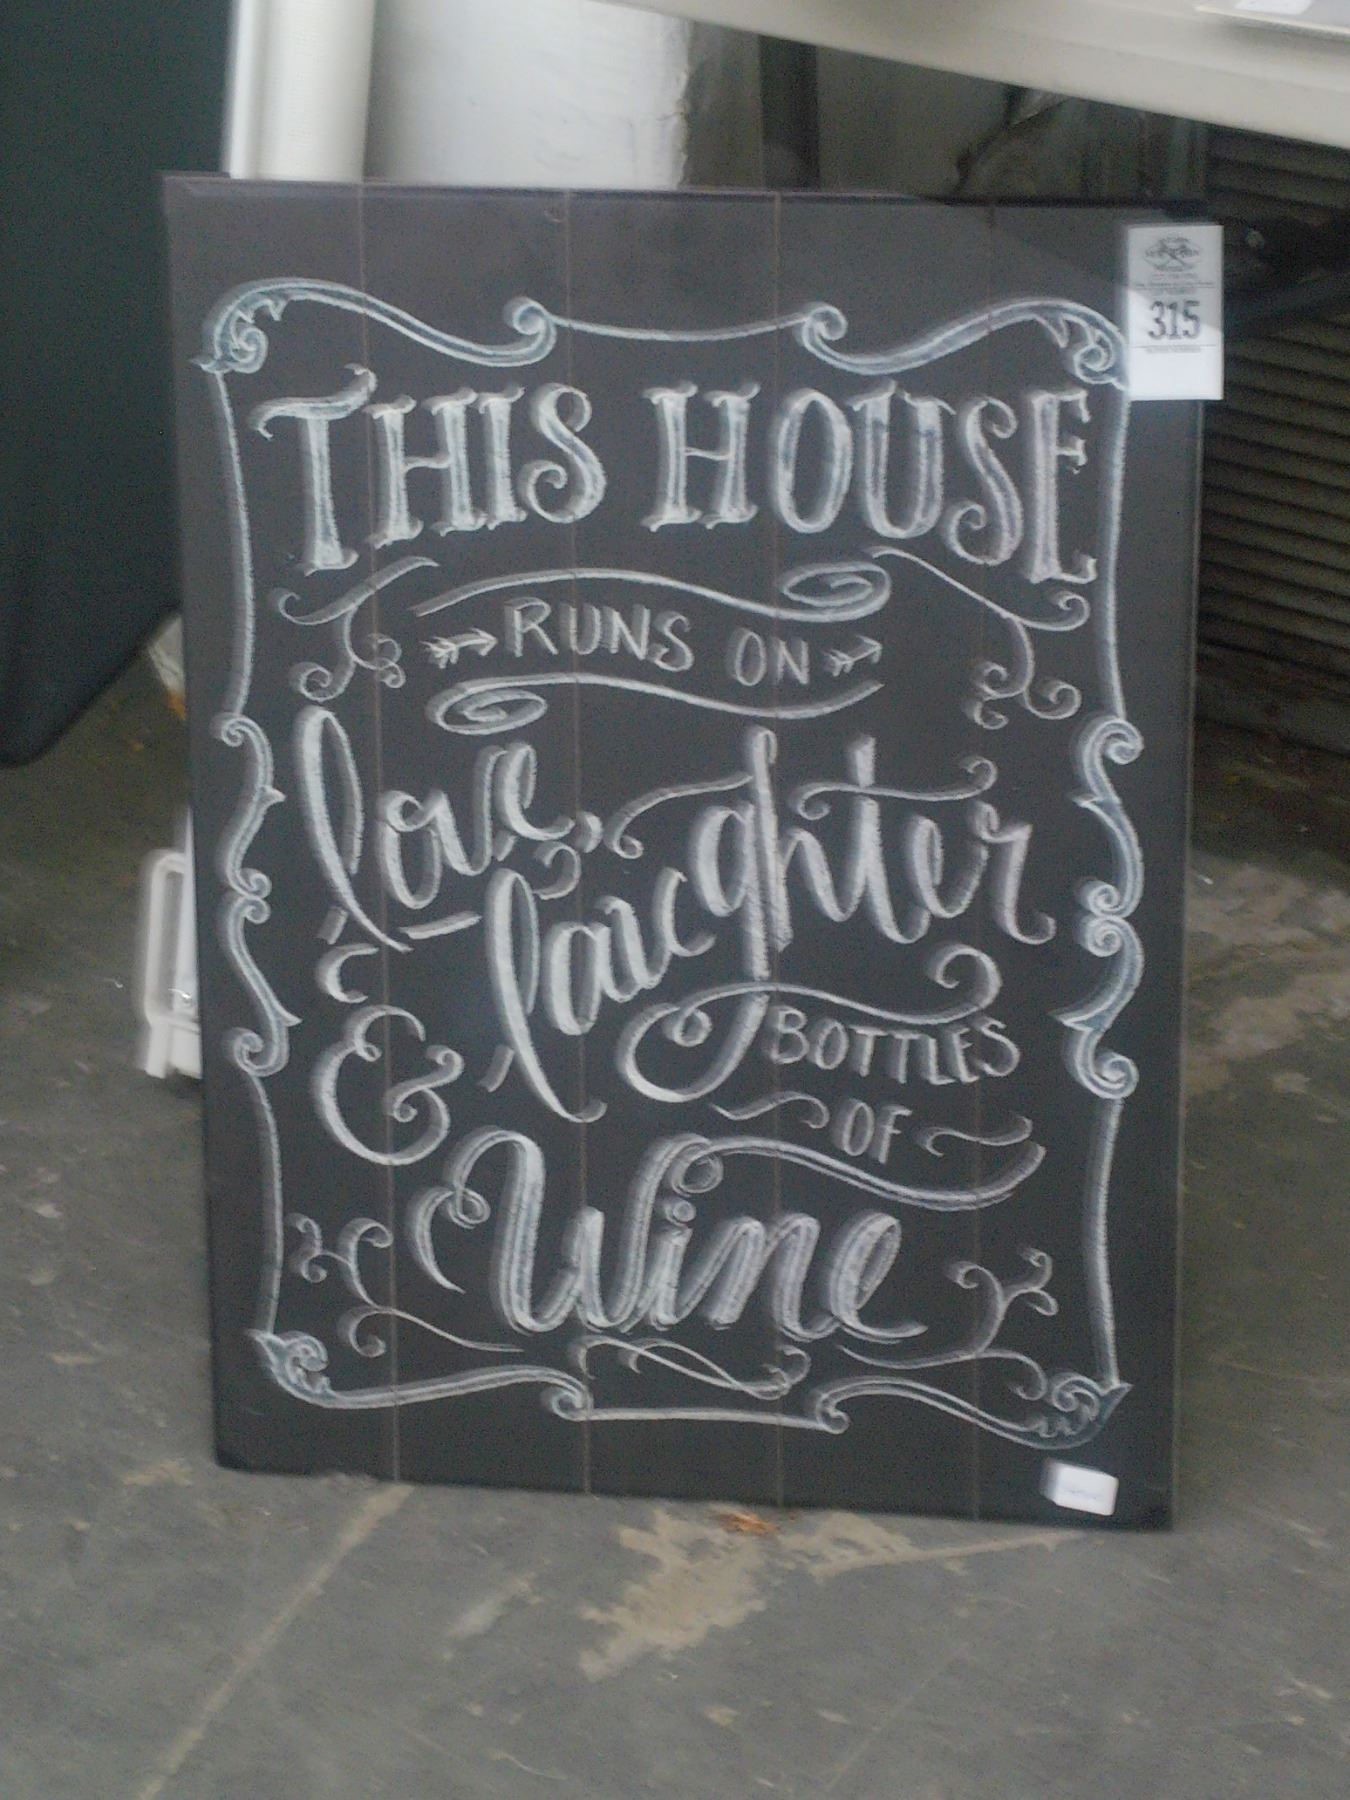 THIS HOUSE
RUNS ON
love,
laughter
&
BOTTLES
OF
Wine
315